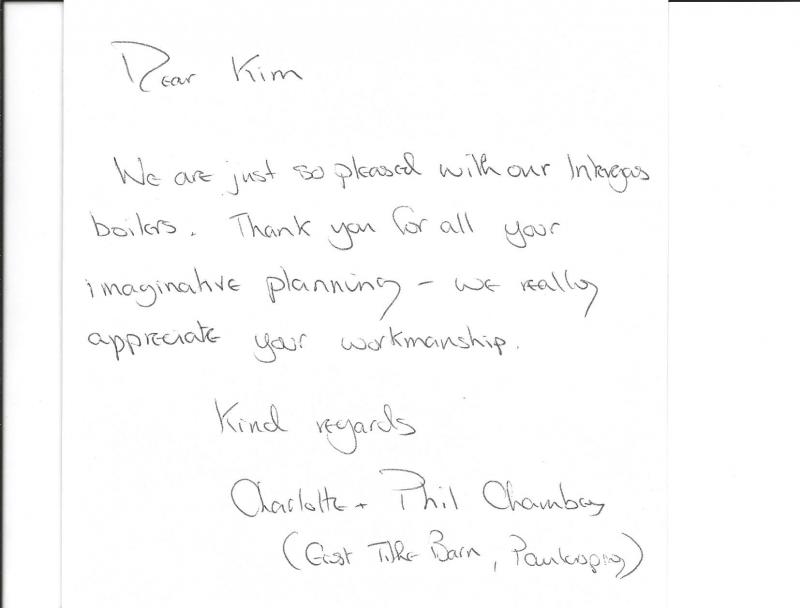 Dear Kim
We are just so pleased with our Intergas
boilers. Thank you for all your
imaginative planning – we really
appreciate your workmanship.
Kind regards
Charlotte + Phil
(East Tithe Barn,